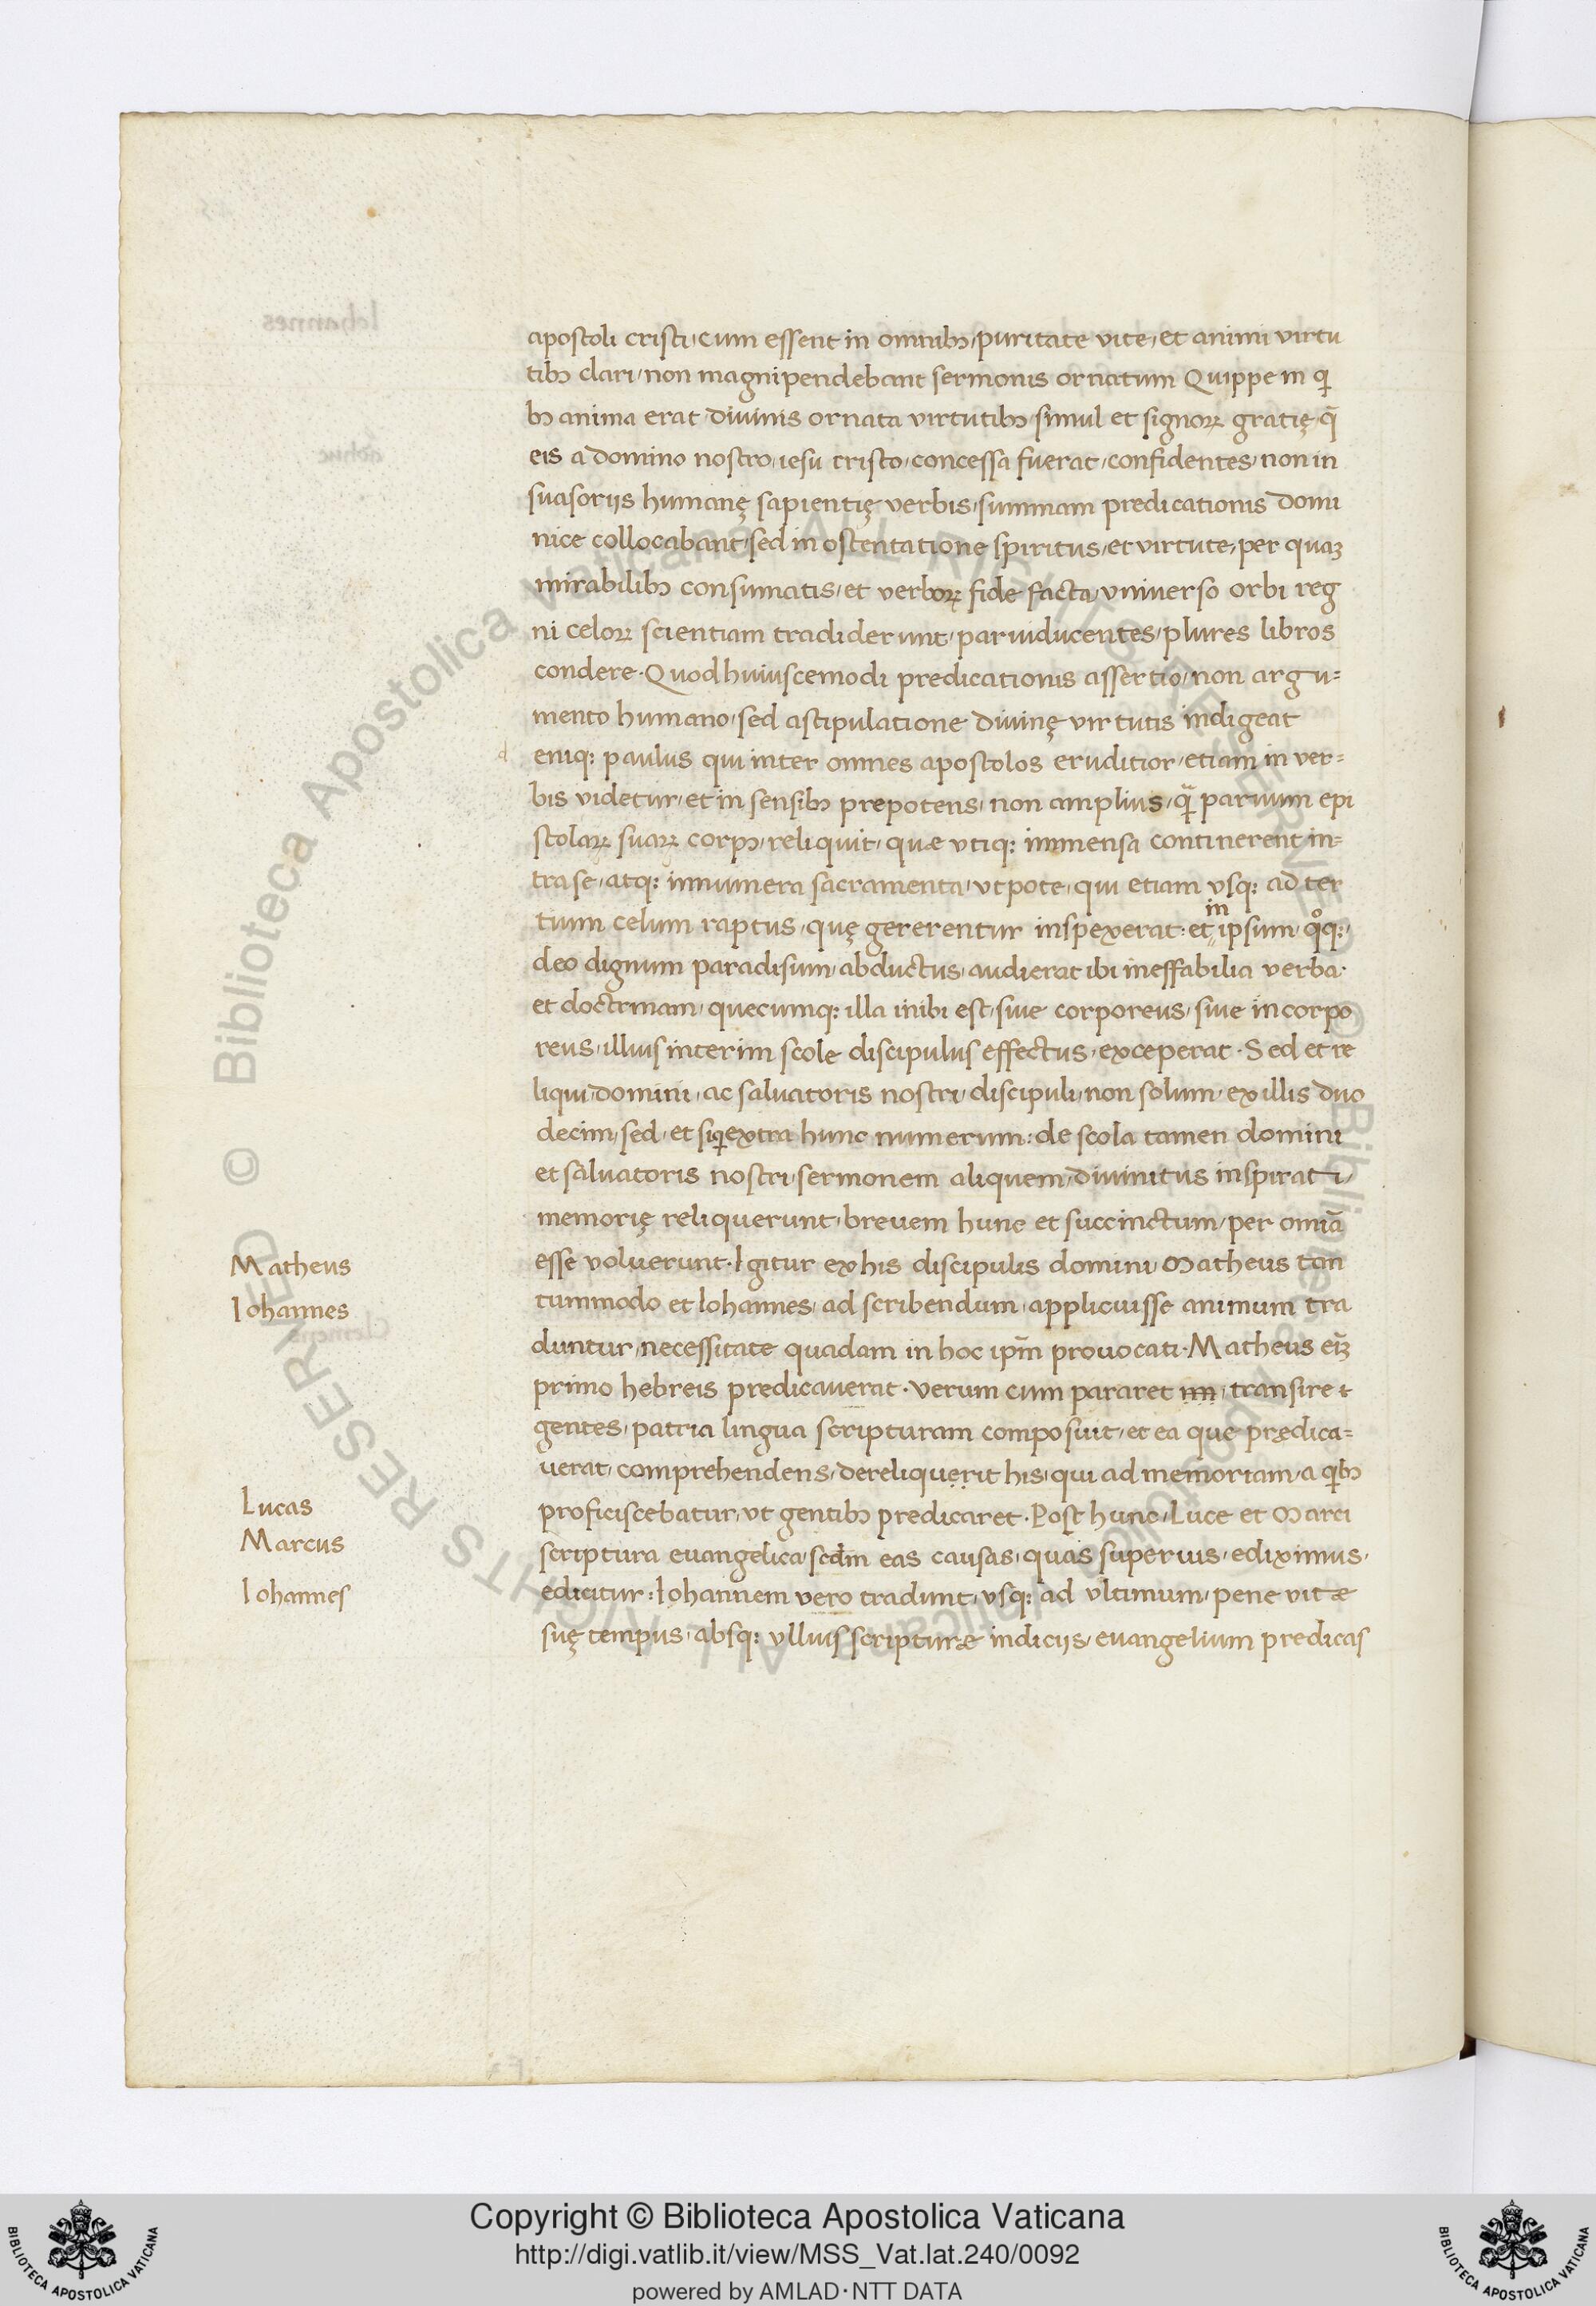 apostoli cristi, cum essent in omnibꝫ, puritate vite, et animi virtu
tibꝫ clari, non magnipendebant sermonis ornatum Quippe in qi
bꝫ anima erat divinis ornata virtutibꝫ, simul et signoꝝ gratię, q̄
eis a domino nostro, iesu cristo, concessa fuerat, confidentes, non in
suasorijs humanę sapientię verbis, summam predicationis domi
nice collocabant, sed in ostentatione spiritus, et virtute, per quaꝫ
mirabilibꝫ consumatis, et verboꝝ fide facta, vniverso orbi reg
ni celoꝝ scientiam tradiderunt, parviducentes, plures libros
condere. Quod huiuscemodi predicationis assertio, non argu=
mento humano, sed astipulatione divinę virtutis indigeat
d eniq: paulus qui inter omnes apostolos eruditior, etiam in ver=
bis videtur, et in sensibꝫ prepotens, non amplius, qᷓ parvum epi
stolaꝝ suaꝝ corpꝫ, reliquit, quæ vtiq: immensa continerent in=
tra se, atq: innumera sacramenta, vt pote, qui etiam vsq: ad ter
in
tium celum raptus, quę gererentur inspexerat: et ipsum, qͦq:,
deo dignum paradisum, abductus, audierat ibi ineffabilia verba.
et doctrinam, quecumq: illa inibi est, sive corporeus, sive incorpo
reus, illius interim scole discipulus effectus, exceperat. Sed et re
liqui, domini, ac salvatoris nostri, discipuli, non solum, ex illis duo
decim, sed, et siqi extra hunc numerum: de scola tamen domini
et salvatoris nostri, sermonem aliquem, divinitus inspirati,
memorię reliquerunt, brevem hunc et succinctum, per omiā
esse voluerunt. Igitur ex his discipulis domini, Matheus tan
tummodo et Iohannes, ad scribendum, applicuisse animum tra
duntur, necessitate quadam in hoc ip̄m provocati. Matheus eīꝫ
primo hebreis predicaverat. verum cum pararet im, transire t
gentes, patria lingua scripturam composuit, et ea que prędica=
verat, comprehendens, dereliquerit his, qui ad memoriam, a qibꝫ
proficiscebatur, vt gentibꝫ predicaret. Post hunc, Luce et Marci
scriptura evangelica, scdm eas causas, quas superius, ediximus,
edicitur: Iohannem vero tradunt, vsq: ad vltimum, pene vitæ
suę tempus, absq: vllius scripturæ indicijs, evangelium predicas
Matheus
Iohannes
Lucas
Marcus
Iohannes
© Biblioteca Apostolica Vaticana ALL RIGHTS RESERVED
© Biblioteca Apostolica Vaticana ALL RIGHTS RESERVED
BIBLIOTECA APOSTOLICA VATICANA
Copyright © Biblioteca Apostolica Vaticana
http://digi.vatlib.it/view/MSS_Vat.lat.240/0092
powered by AMLAD·NTT DATA
BIBLIOTECA APOSTOLICA VATICANA